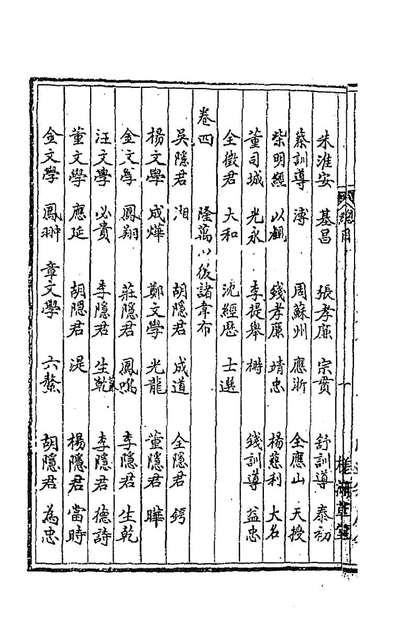 朱淮安 基昌 張孝廉 宗貫 舒訓導 泰初
蔡訓導 溥 周蘇州 應浙 全應山 天授
柴明經 以觀 錢孝廉 靖忠 楊慈利 大名
董司城 光永 李提舉 樹 錢訓導 益忠
全徵君 大和 沈經歷 士選
卷四 隆萬以後諸韋布
吳隱君 湘 胡隱君 成道 全隱君 鍔
楊文學 成燁 鄭文學 光龍 董隱君 曄
金文學 鳳翔 莊隱君 鳳鳴 李隱君 生乾
汪文學 必貴 李隱君 生 李隱君 德詩
董文學 應延 胡隱君 湜 楊隱君 當時
金文學 鳳翀 章文學 六鰲 胡隱君 為忠
總目